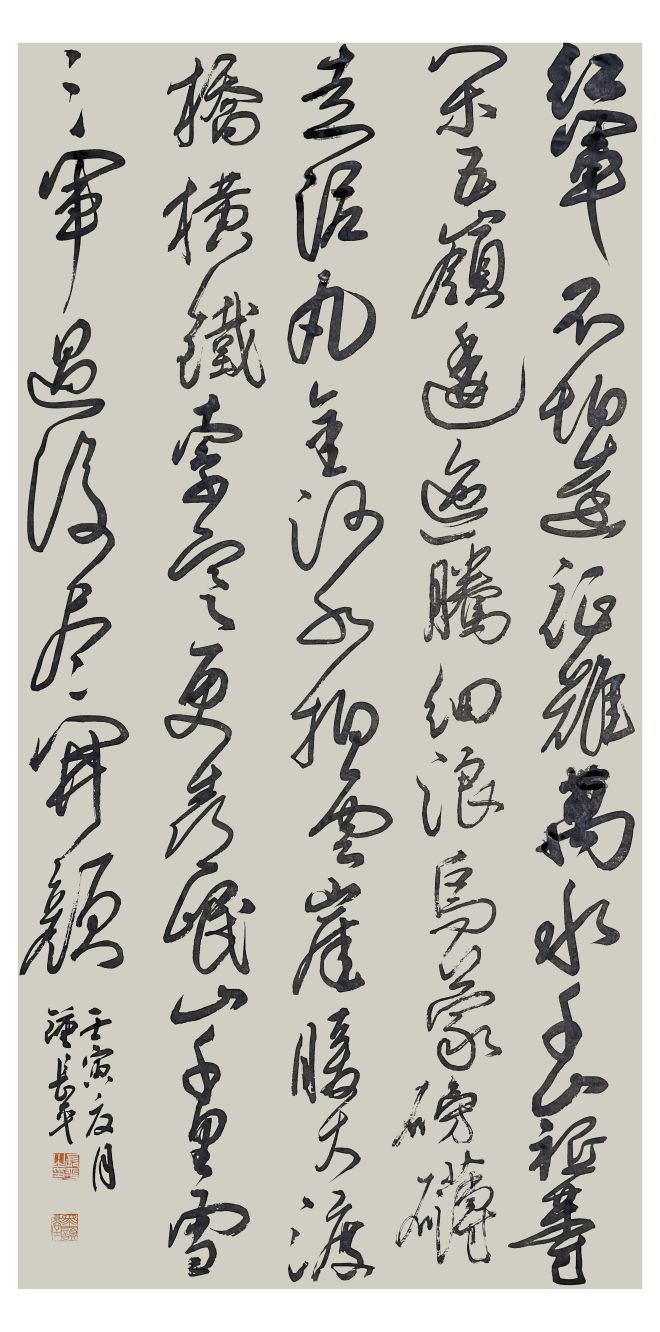 红軍不怕遠征難萬水千山祗等
閑五嶺逶迤騰細浪烏蒙磅礴
走泥丸金沙水拍雲崖暖大渡
橋橫鐵索寒更喜岷山千里雪
三軍過後尽開顏
壬寅夏月
長